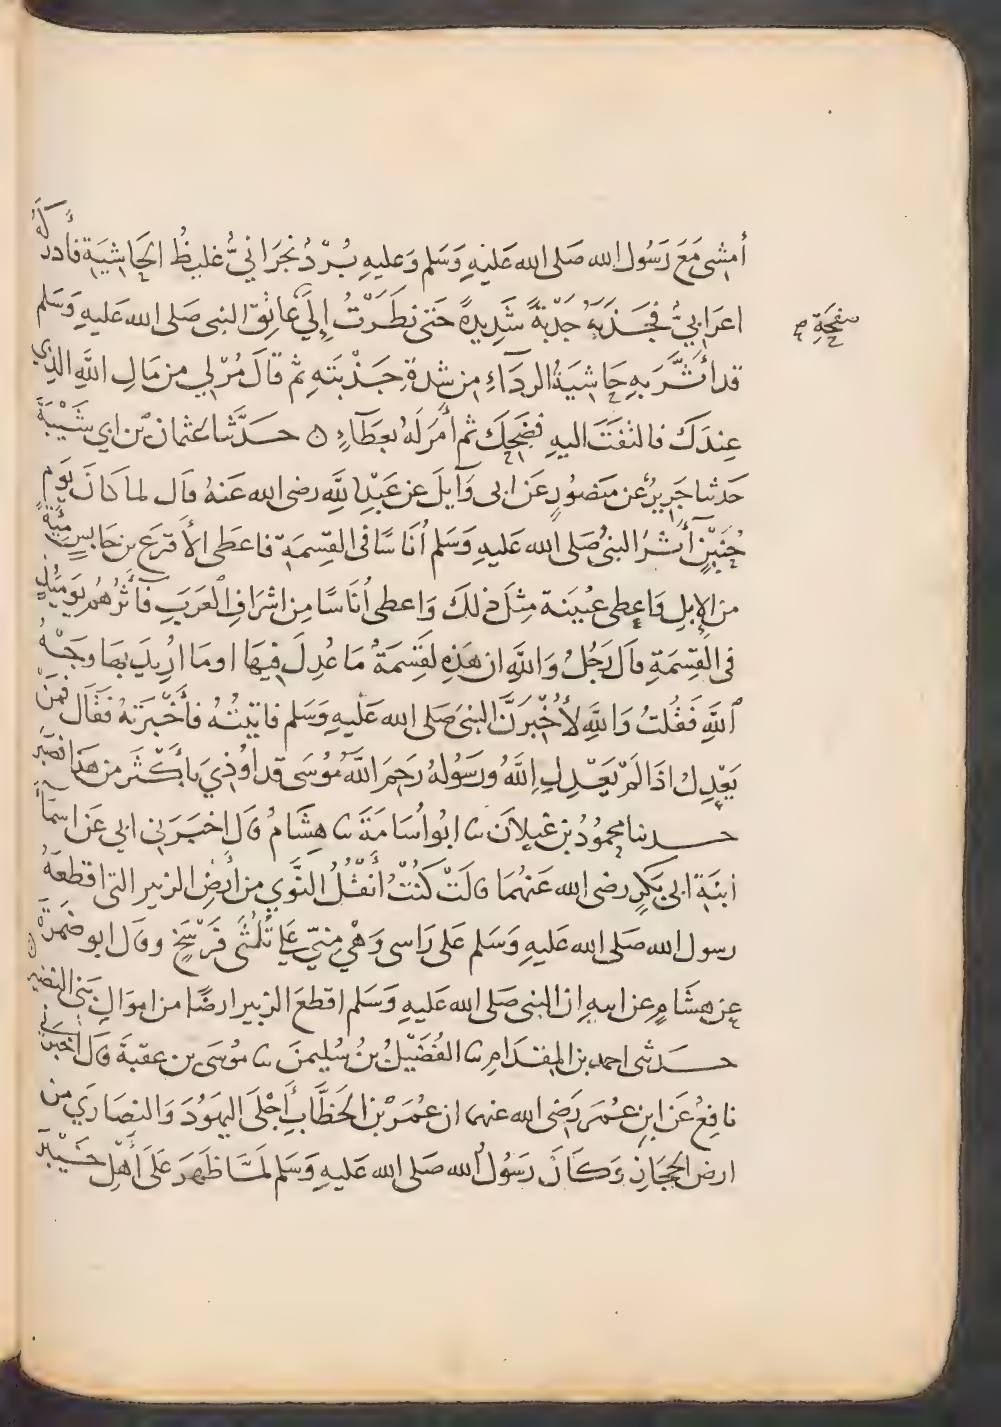 أمشى مَعَ رَسُول الله صَلى الله عَليْهِ وَسَلم وَعليهِ بُرْدٌ نجرَانيٌّ غليظُ الحَاشِيَةِ فأدركَهُ
اعرَابيٌّ فجَذَبَهُ جَذْبَةً شَدِيدةً حَتى نظَرْتُ إلَى عَاتِقِ النبى صَلى الله عَليهِ وَسَلم
صفحة
قد أثَّرَ بهِ حَاشِيَةُ الردَاءِ مِن شِدةِ جَذْبتهِ ثم قالَ مُرْ لي مِن مَالِ اللَّهِ الذِي
عِندَكَ فالتفتَ اليهِ فضَحِكَ ثم أمَرَ لَهُ بعطَاءٍ ٥ حَدَّثنا عثمان بن ابى شَيْبَةَ
حَدثنا جَرِيرٌ عن مَنصُورٍ عَن ابى وَآيلَ عن عَبْدِ اللَّهِ رضى الله عَنهُ قال لما كانَ يَومُ
حُنَيْنٍ آثَرَ النبىُّ صَلى الله عَليهِ وَسَلم أُنَاسًا فى القِسمَةِ فاعطى الأقرَع بن حَابسٍ مِئَةً
من الإبلِ وَاعطى عُيينَة مِثلَ ذلكَ وَاعطى أُنَاسًا مِن اشرَافِ العَرَبِ فآثَرَهُمْ يَومَئِذٍ
فى القِسمَةِ قال رَجُلٌ وَاللَّهِ ان هَذِهِ لقِسْمَةٌ مَا عُدِلَ فِيهَا او مَا ارُيدَ بهَا وَجْهُ
اللَّهِ فَقُلتُ وَاللَّهِ لأُخْبِرَنَّ النبىَ صَلى الله عَليهِ وَسَلم فاتيْتُهُ فأخْبَرتهُ فقَال فمَنْ
يَعْدِلُ اذَا لَمْ يَعْدِلِ اللَّهُ ورَسُولهُ رَحِمَ اللَّهُ مُوسَى قد اوُذِيَ بأكْثَرَ مِن هَذَا فصَبَر
حدثنا محمُودُ بن غيلاَن ثنا ابُو اُسَامَةَ ثنا هِشَامٌ قال اخبَرَنى ابي عَن اسمَآءَ
ابنَةِ ابى بَكرٍ رضى الله عَنهُمَا قالَتْ كُنتُ أنْقُلُ النَّوى مِن أَرضِ الزبير التى اقطعَهُ
رسول الله صَلى الله عَليهِ وَسَلم عَلى رَاسى وَهْى مِنّى عَلى ثُلُثَىْ فَرْسَخٍ وقال ابو ضَمرَةَ
عن هشَامٍ عن ابيهِ ان النبى صَلى الله عَليهِ وَسَلم اقطعَ الزبير ارضًا من اموَالِ بَنى النضير
حَدثنى احمد بن المِقدَامِ ثنا الفُضَيْلُ بنُ سُليمنَ ثنا مُوسَى بن عقبَةَ قال اخبَرَنى
نافِعٌ عَن ابنِ عُمَرَ رَضى الله عنهما ان عُمَرَ بْن الخَطَّابِ أَجْلَى اليهوُدَ وَالنصَارَى مِن
ارض الحِجَازِ وَكَانَ رَسُولُ الله صَلى الله عَليهِ وَسَلم لَمَّا ظَهَرَ عَلَى أَهْلِ خَيْبَرَ